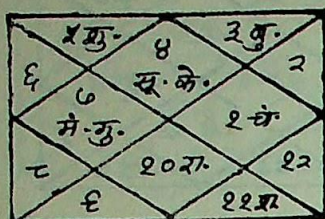 ५ शु. ४ ३ बु.
६ सू. के. २
७
मं. गु. १ चं.
८ १० रा. १२
९ ११ श.